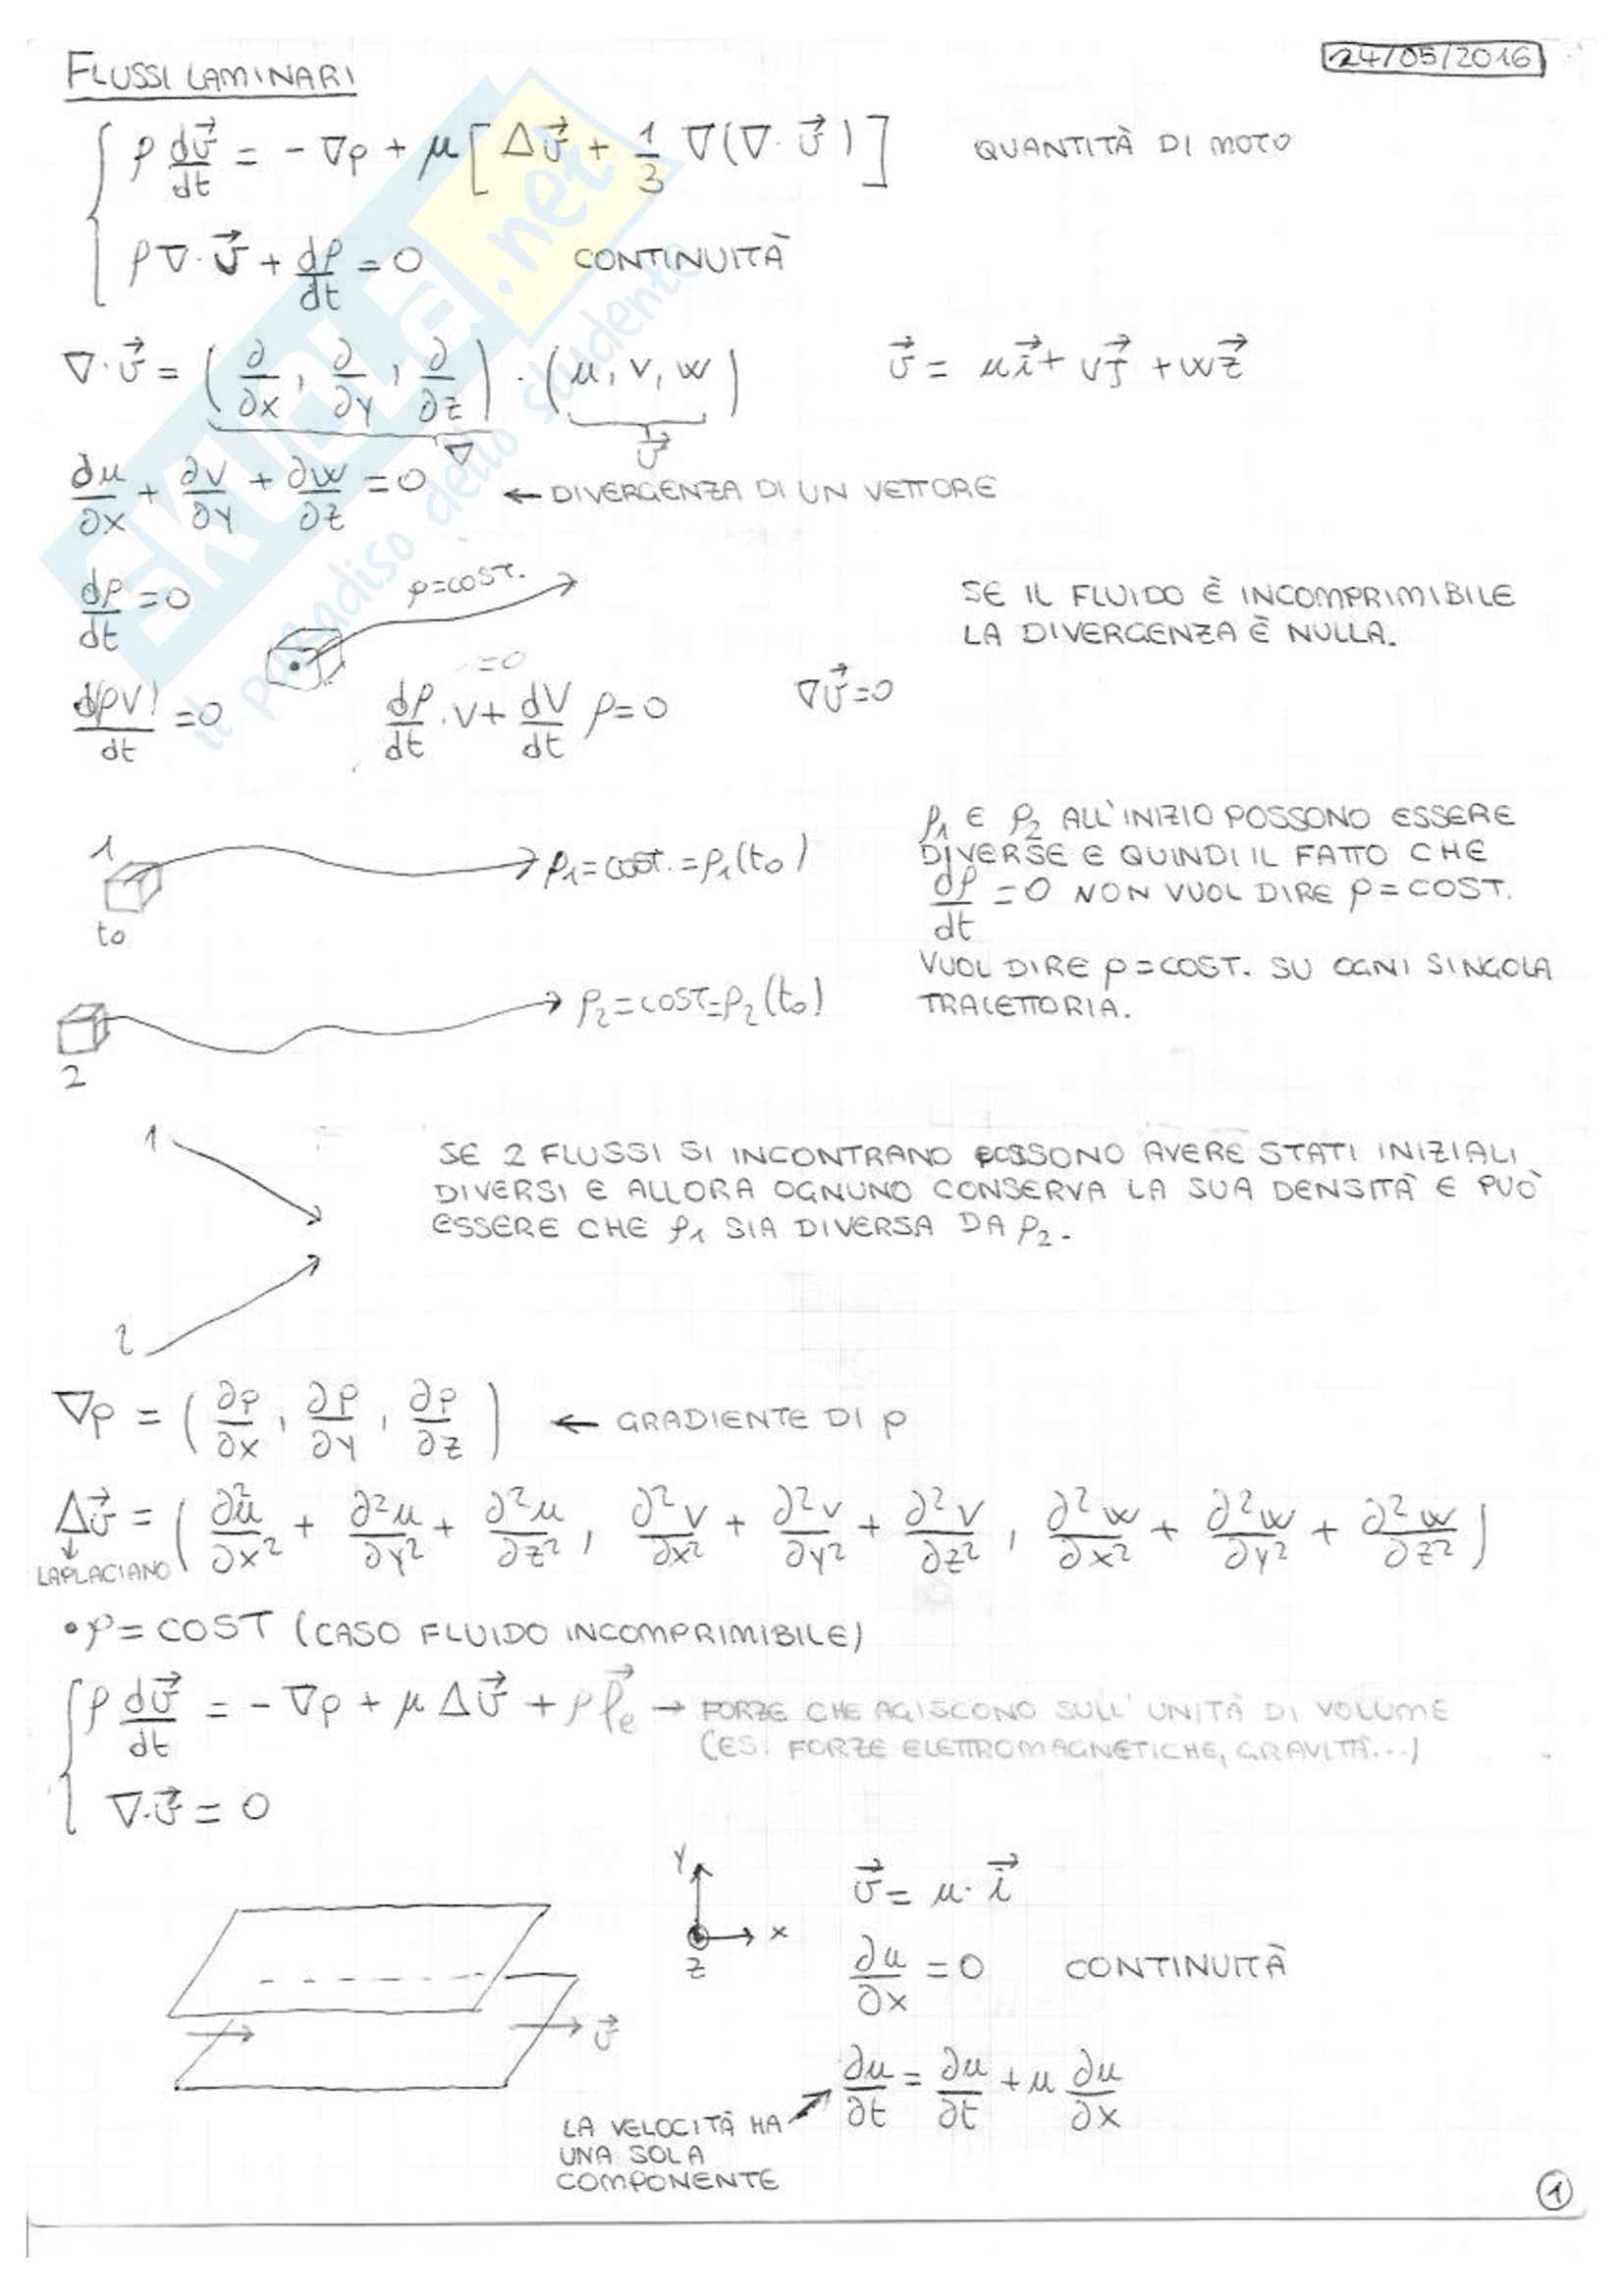 FLUSSI LAMINARI 24/05/2016
ρ dv⃗/dt = - ∇p + μ[Δv⃗ + 1/3 ∇(∇· v⃗)] QUANTITÀ DI MOTO
ρ∇·v⃗ + dρ/dt = 0 CONTINUITÀ
∇·v⃗ = (∂/∂x, ∂/∂y, ∂/∂z) · (u, v, w) v⃗ = ui⃗ + vj⃗ + wz⃗
∇ v⃗
∂u/∂x + ∂v/∂y + ∂w/∂z = 0 ← DIVERGENZA DI UN VETTORE
dρ/dt = 0 ρ=COST. SE IL FLUIDO È INCOMPRIMIBILE
LA DIVERGENZA È NULLA.
=0
d(ρV)/dt = 0 dρ/dt · V + dV/dt ρ = 0 ∇v⃗=0
1 t0 ρ1 = COST. = ρ1(t0)
ρ1 E ρ2 ALL'INIZIO POSSONO ESSERE
DIVERSE E QUINDI IL FATTO CHE
dρ/dt = 0 NON VUOL DIRE ρ=COST.
VUOL DIRE ρ=COST. SU OGNI SINGOLA
TRAIETTORIA.
2 ρ2=COST=ρ2(t0)
1
SE 2 FLUSSI SI INCONTRANO POSSONO AVERE STATI INIZIALI
DIVERSI E ALLORA OGNUNO CONSERVA LA SUA DENSITÀ E PUÒ
ESSERE CHE ρ1 SIA DIVERSA DA ρ2.
2
∇p = (∂p/∂x, ∂p/∂y, ∂p/∂z) ← GRADIENTE DI p
Δv⃗ = (∂²u/∂x² + ∂²u/∂y² + ∂²u/∂z², ∂²v/∂x² + ∂²v/∂y² + ∂²v/∂z², ∂²w/∂x² + ∂²w/∂y² + ∂²w/∂z²)
↓
LAPLACIANO
• ρ = COST (CASO FLUIDO INCOMPRIMIBILE)
ρ dv⃗/dt = - ∇p + μ Δv⃗ + ρ f⃗e → FORZE CHE AGISCONO SULL'UNITÀ DI VOLUME
(ES. FORZE ELETTROMAGNETICHE, GRAVITÀ...)
∇·v⃗ = 0
Y X Z
v⃗
v⃗ = u· i⃗
∂u/∂x = 0 CONTINUITÀ
∂u/∂t = ∂u/∂t + u ∂u/∂x
LA VELOCITÀ HA
UNA SOLA
COMPONENTE
1
SKUOLA.net
il paradiso dello studente